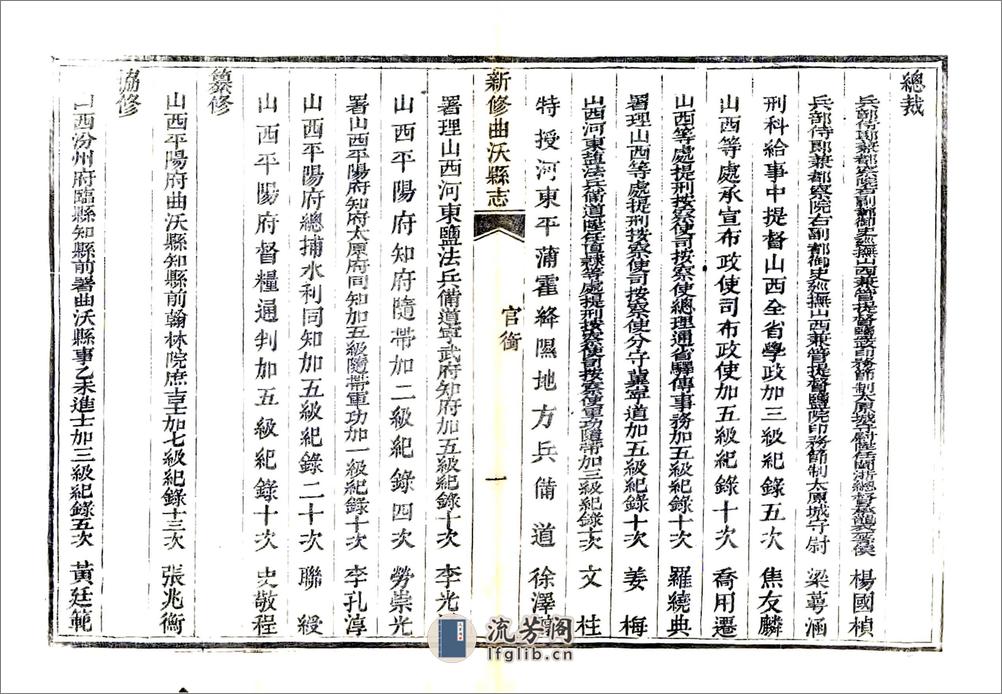 總裁
兵部侍郎兼都察院右副都御史巡撫山西兼管提督鹽政印務節制太原城守尉陞任閩浙總督 楊國楨
兵部侍郎兼都察院右副都御史巡撫山西兼管提督鹽院印務節制太原城守尉 梁萼涵
刑科給事中提督山西全省學政加三級紀錄五次 焦友麟
山西等處承宣布政使司布政使加五級紀錄十次 喬用遷
山西等處提刑按察使司按察使總理通省驛傳事務加五級紀錄十次 羅繞典
署理山西等處提刑按察使司按察使分守冀寧道加五級紀錄十次 姜梅
山西河東鹽法兵備道陞任直隸等處提刑按察使司按察使軍功隨帶加三級紀錄十次 文桂
特授河東平蒲霍絳隰地方兵備道 徐澤
新修曲沃縣志
官銜
一
署理山西河東鹽法兵備道寧武府知府加五級紀錄十次 李光
山西平陽府知府隨帶加二級紀錄四次 勞崇光
署山西平陽府知府太原府同知加五級隨帶軍功加一級紀錄十次 李孔淳
山西平陽府總捕水利同知加五級紀錄二十次 聯綬
山西平陽府督糧通判加五級紀錄十次 史敬程
纂修
山西平陽府曲沃縣知縣前翰林院庶吉士加七級紀錄十三次 張兆衡
協修
山西汾州府臨縣知縣前署曲沃縣事乙未進士加三級紀錄五次 黃廷範
流芳閣
lfglib.cn